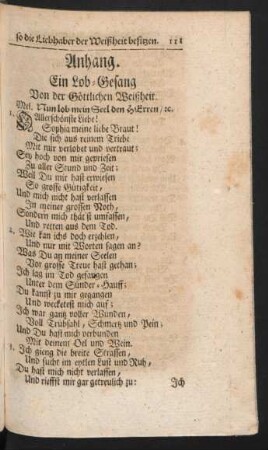 so die Liebhaber der Weißheit besitzen. 111
Anhang.
Ein Lob-Gesang
Von der Göttlichen Weißheit.
Mel. Nun lob mein Seel den HErren/ ꝛc.
1. O Allerschönste Liebe!
Sophia meine liebe Braut!
Die sich aus reinem Triebe
Mit mir verlobet und vertraut:
Sey hoch von mir gepriesen
Zu aller Stund und Zeit:
Weil Du mir hast erwiesen
So grosse Gütigkeit/
Und mich nicht hast verlassen
In meiner grossen Noth/
Sondern mich thät'st umfassen/
Und retten aus dem Tod.
2. Wie kan ichs doch erzehlen/
Und nur mit Worten sagen an?
Was Du an meiner Seelen
Vor grosse Treue hast gethan:
Ich lag im Tod gefangen
Unter dem Sünder-Hauff:
Du kamst zu mir gegangen
Und wecketest mich auf:
Ich war gantz voller Wunden/
Voll Trübsahl/ Schmertz und Pein:
Und Du hast mich verbunden
Mit deinem Oel und Wein.
3. Ich gieng die breite Strassen/
Und sucht im eytlen Lust und Ruh/
Du hast mich nicht verlassen/
Und rieffst mir gar getreulich zu:
Ich